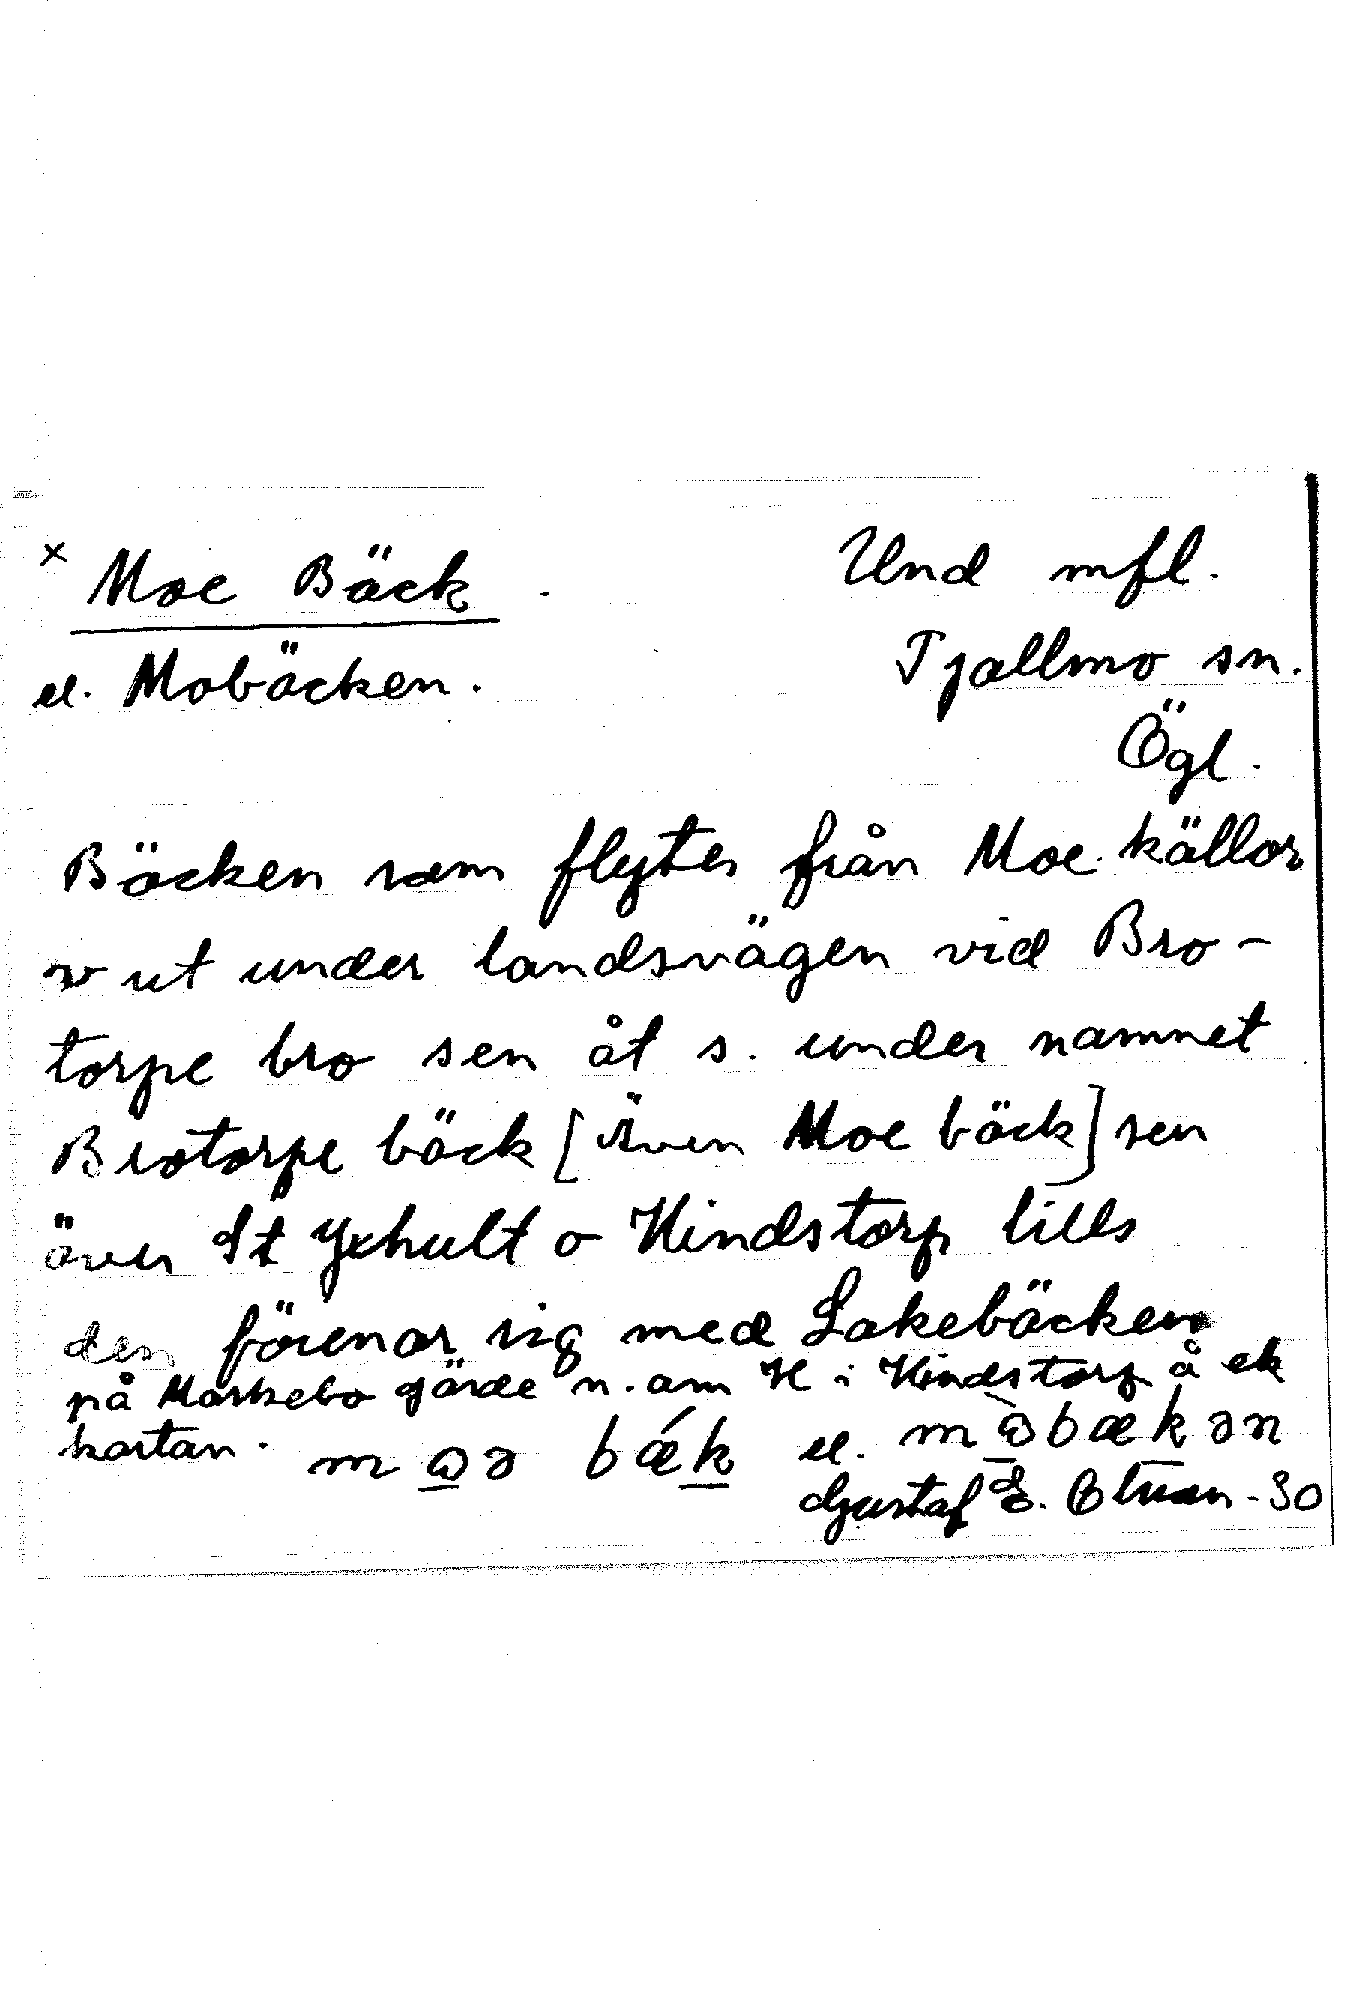 x Moe Bäck. Und mfl.
el. Mobäcken. Tjällmo sn.
Ögl.
Bäcken som flyter från Moe källor
v ut under landsvägen vid Bro-
torpe bro sen åt s. under namnet
Brotorpe bäck [även Moe bäck] sen
över St Yxhult o Hindstorp tills
den förenar sig med Lakebäcken
på Morkebo gärde n. om H i Hindstorp å ek
kartan. mωə bǽk el. mὼbækən
Gustaf E. -30